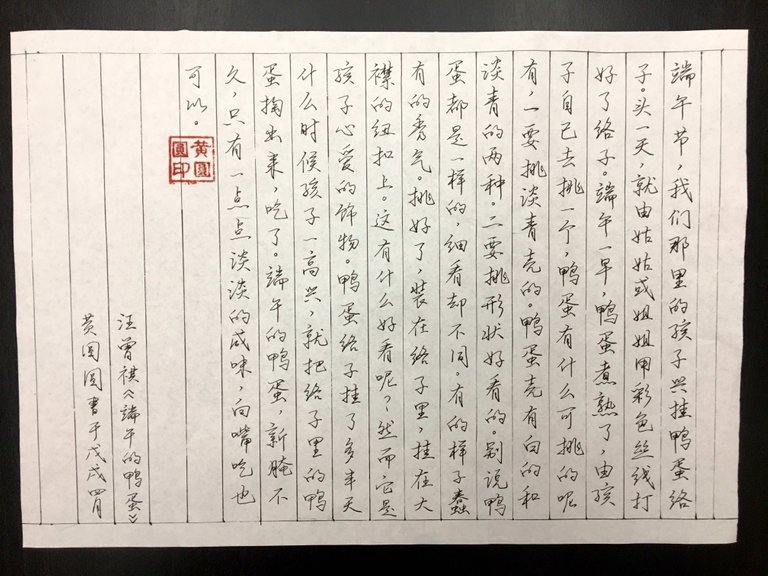 端午节，我们那里的孩子兴挂鸭蛋络
子。头一天，就由姑姑或姐姐用彩色丝线打
好了络子。端午一早，鸭蛋煮熟了，由孩
子自己去挑一个，鸭蛋有什么可挑的呢
有，一要挑淡青壳的。鸭蛋壳有白的和
淡青的两种。二要挑形状好看的。别说鸭
蛋都是一样的，细看却不同。有的样子蠢
有的秀气。挑好了，装在络子里，挂在大
襟的纽扣上。这有什么好看呢？然而它是
孩子心爱的饰物。鸭蛋络子挂了多半天
什么时候孩子一高兴，就把络子里的鸭
蛋掏出来，吃了。端午的鸭蛋，新腌不
久，只有一点点淡淡的咸味，白嘴吃也
可以。
黄圆圆印
汪曾祺《端午的鸭蛋》
黄圆圆书于戊戌四月